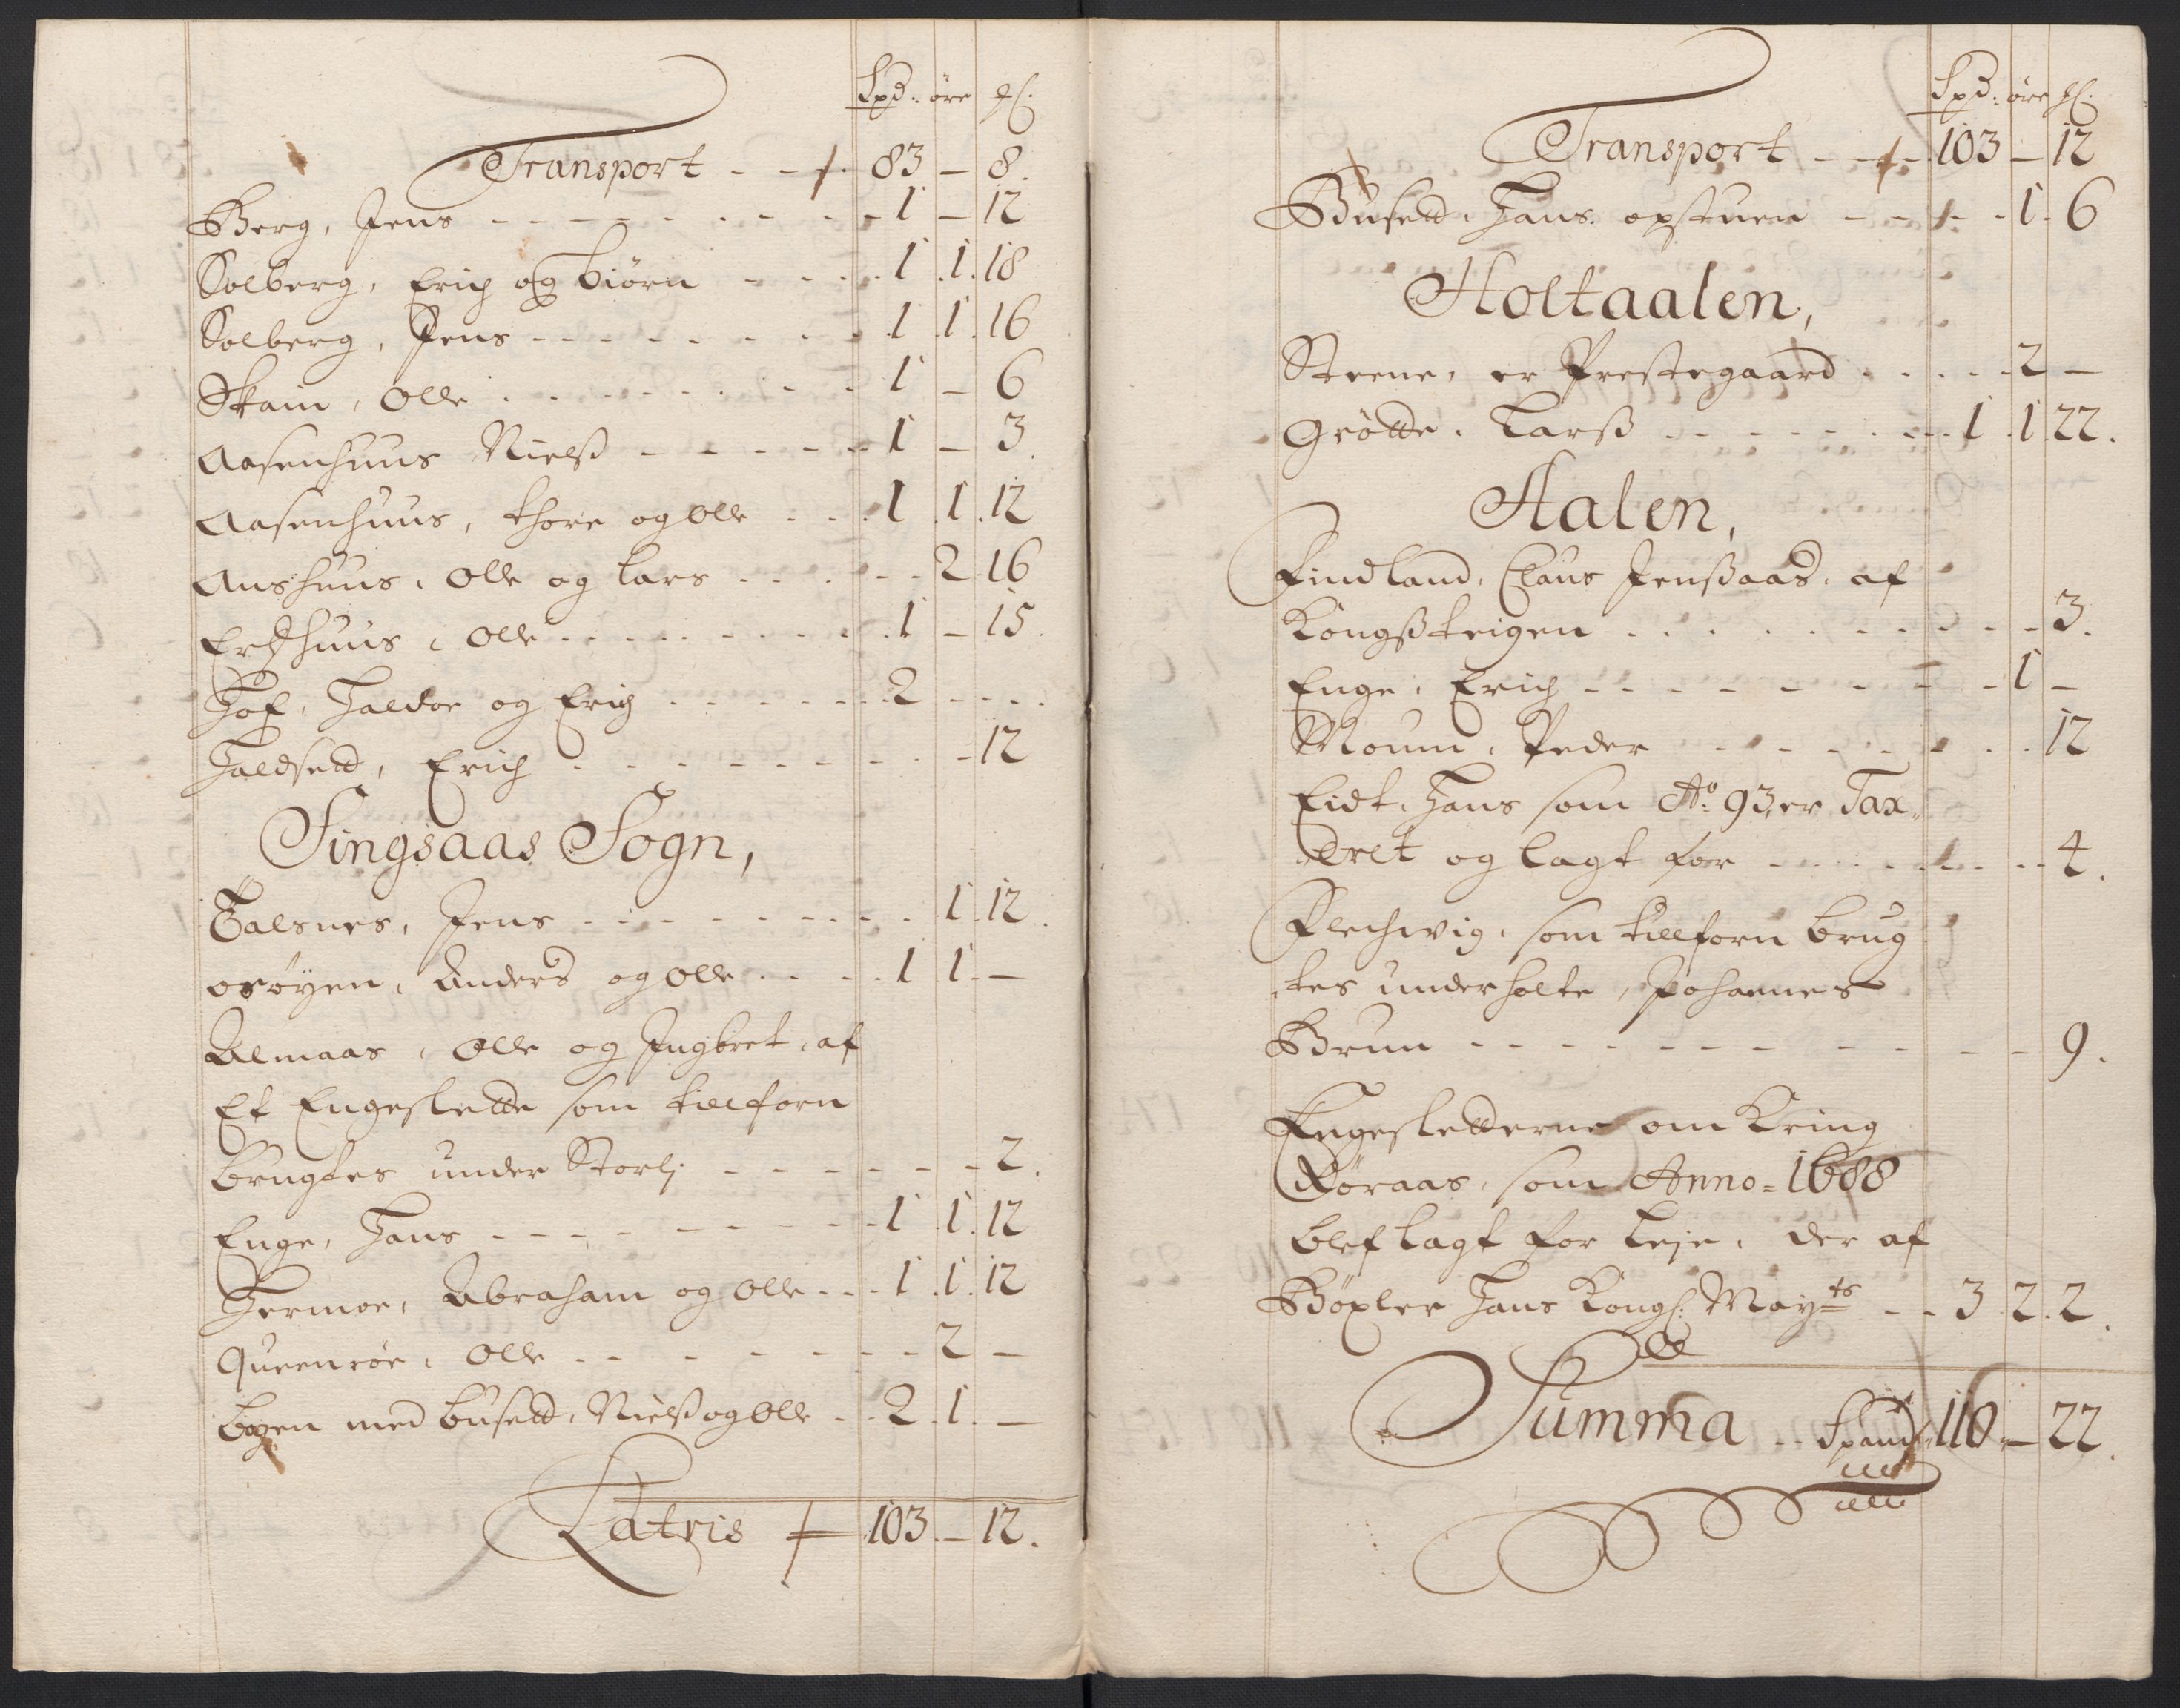 Spd: øre
Transport - - 83 - 8.
Berg, Jens - - - - 1 - 12
Solberg, Erich og biørn - - - 1. 1. 18
Solberg, Jens - - - - 1. 1. 16
Skain, Olle - - - - 1 - 6
Aasenhuus Nielß - - - - 1 - 3.
Aasenhuus, thore og olle - - 1. 1. 12
Aushuus, Olle og lars - - - - 2. 16
Olle - - - - 1 - 15.
Hof, Haldor og Erich - - - - 2 - - -
Haldsett, Erich - - - - 12
Singsaas Sogn,
Talsnes, Jens - - - - 1. 12.
orøyen, Anders og olle - - - 1. 1. -
Almaas, Olle og Ingbret, af
Et Engeslette som tillforn
brugtes under Storlj - - - - 2.
Enge, Hans - - - - 1. 1. 12
Hermoe, Abraham og olle - - 1. 1. 12
Queenrøe, Olle - - - - 2 -
bøgen med busett, Nielß og olle - - 2. 1. -
Latris 103 - 12.
Spd: øre
Transport - - - 103 - 12
Busett, Hans opstuen - - - 1. 6
Holtaalen,
Steene, er Prestegaard - - - - 2 -
Grøtte, Larß - - - - 1. 1. 22.
Aalen,
Findland, Claus Jenßaas, af
Kongßteigen - - - - 3.
Enge, Erich - - - - 1 -
Moum, Peder - - - - 12
Eidt, Hans som Ao: 93, er Tax-
eret og lagt for - - - - 4.
Flechwig, som tillforn brug
tes under holte, Johannes
Brun - - - - 9.
Engesletterne om Kring
Røraas, som Anno = 1688
blef lagt for leje, der af
Böxler Hans Kongl: Mayts - - 3. 2. 2.
Summa - - Spand 110 - 22.